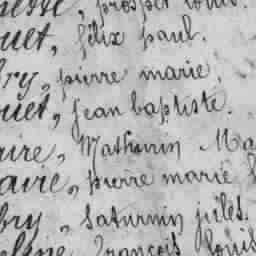 prosper louis.
uet, félix paul.
ry, pierre marie,
uet, jean baptiste.
aire, Mathurin Ma
avre, pierre marie
bry, saturnin jules.
françois louis